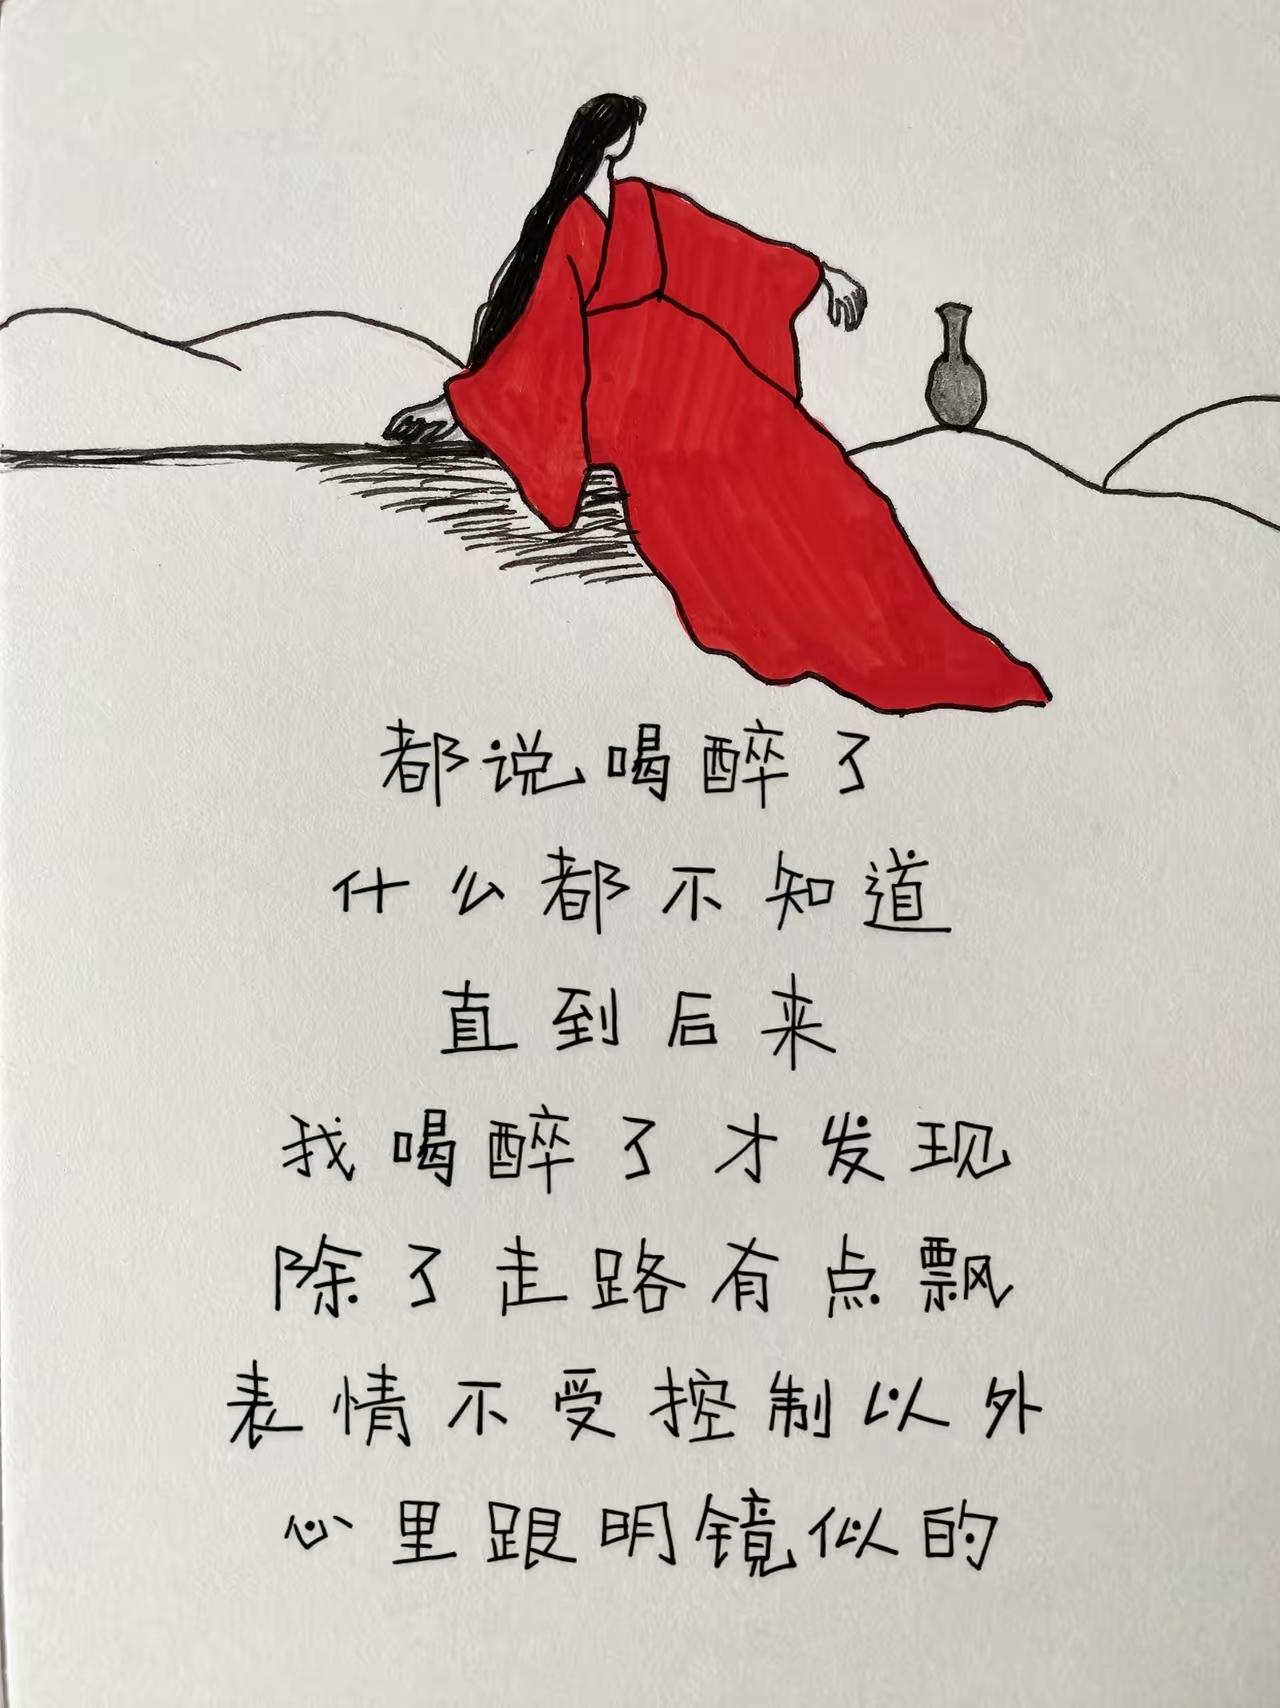 都说喝醉了
什么都不知道
直到后来
我喝醉了才发现
除了走路有点飘
表情不受控制以外
心里跟明镜似的